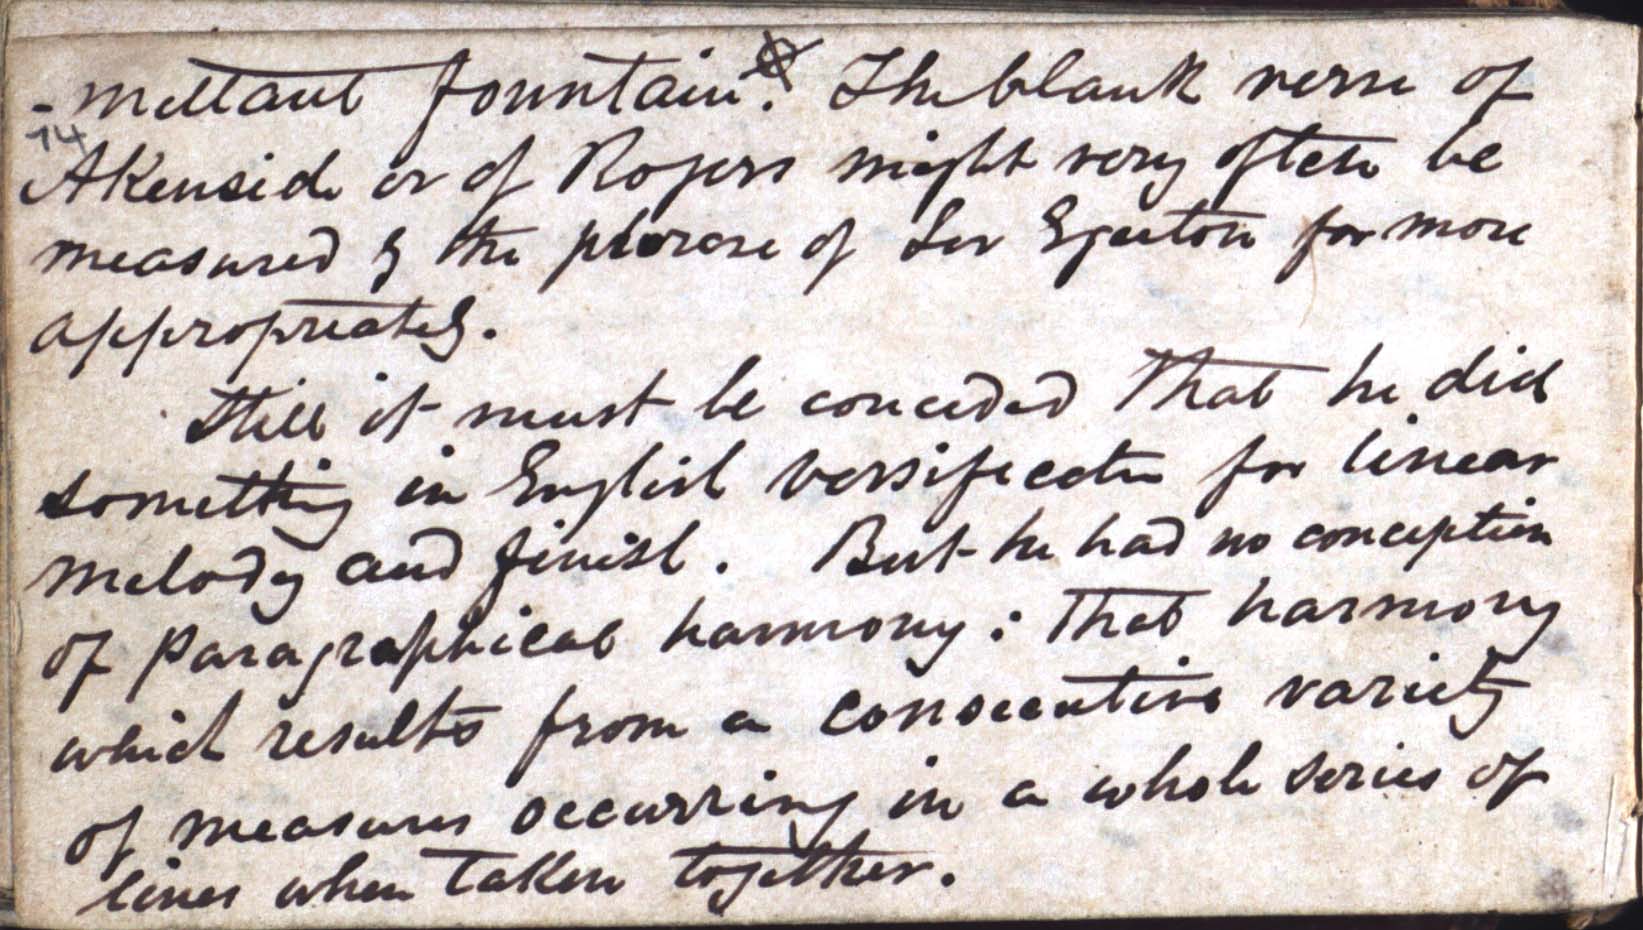 -mittant fountain". The blank verse of
74
Akenside or of Rogers might very often be
measured by the phrase of Sir Egerton far more
appropriately.
Still it must be conceded that he did
something in English versification for linear
melody and finish. But he had no conception
of paragraphical harmony: that harmony
which results from a consecutive variety
of measures occurring in a whole series of
lines when taken together.